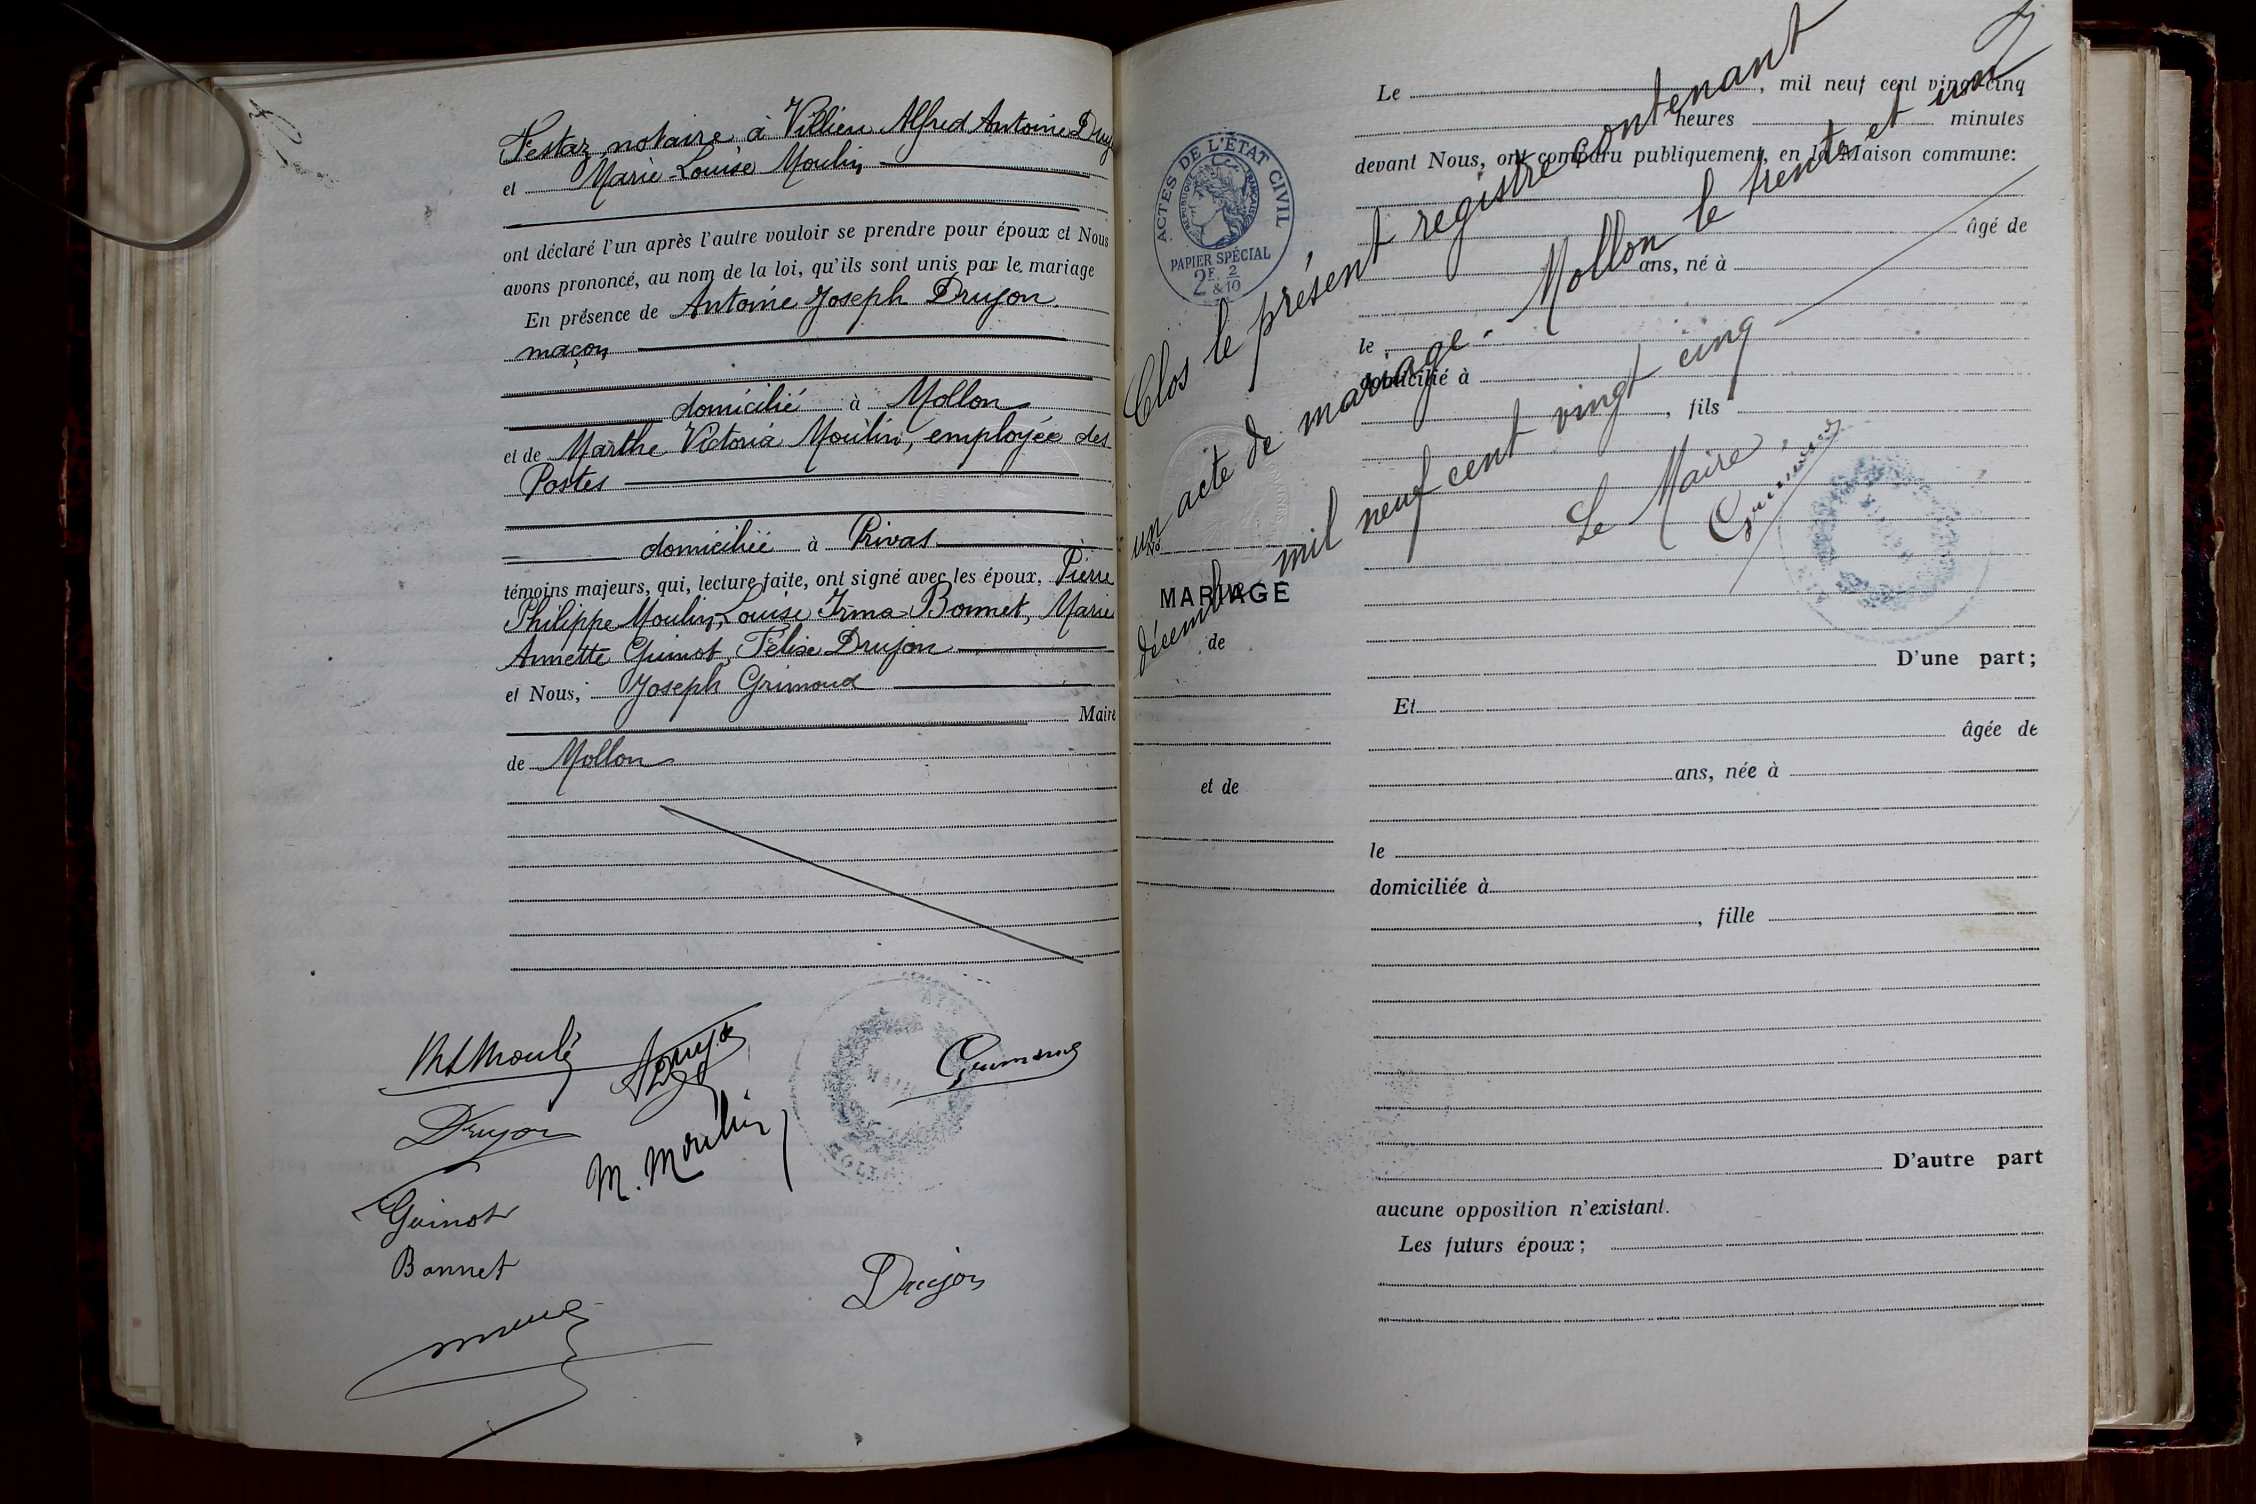 Festaz, notaire à Villieu Alfred Antoine Druj
et Marie-Louise Moulin
ont déclaré l'un après l'autre vouloir se prendre pour époux et Nous
avons prononcé, au nom de la loi, qu'ils sont unis par le mariage
En présence de Antoine Joseph Drujon
maçon
domicilié à Mollon
et de Marthe Victoria Moulin, employée des
Postes
domiciliée à Privas
témoins majeurs, qui, lecture faite, ont signé avec les époux, Pierre
Philippe Moulin, Louise Irma Bonnet, Marie
Annette Guinot, Félise Drujon
et Nous, Joseph Grimoud
Maire
de Mollon
Drujon
M. Moulin
Guinot
Bonnet
Drujon
MAIRIE
ACTES DE L'ÉTAT CIVIL
RÉPUBLIQUE FRANÇAISE
PAPIER SPÉCIAL
2F. 2
& 10
Clos le présent registre contenant
un acte de mariage. Mollon le trente et un
décembre mil neuf cent vingt cinq
Le Maire
Le , mil neuf cent vingt-cinq
heures minutes
devant Nous, ont comparu publiquement, en la Maison commune:
âgé de
ans, né à
le
domicilié à
, fils
No
MARIAGE
de
et de
D'une part;
Et
âgée de
ans, née à
le
domiciliée à
, fille
D'autre part
aucune opposition n'existant.
Les futurs époux;